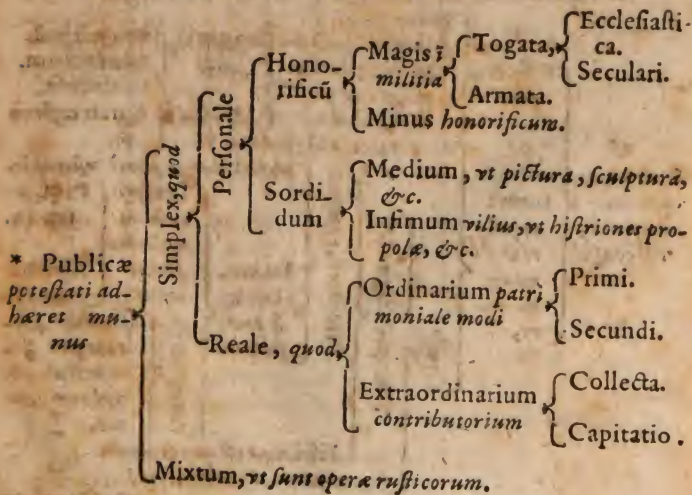 * Publicæ
poteſtati ad-
hæret mu-
nus
Simplex, quod
Perſonale
Hono-
rificũ
Magis ĩ
militia
Togata,
Eccleſiaſti-
ca.
Seculari.
Armata.
Minus honorificum.
Sordi-
dum
Medium, vt pictura, ſculptura,
&c.
Infimum vilius, vt hiſtriones pro-
polæ, &c.
Reale, quod,
Ordinarium patri
moniale modi
Primi.
Secundi.
Extraordinarium
contributorium
Collecta.
Capitatio.
Mixtum, vt ſunt operæ ruſticorum.